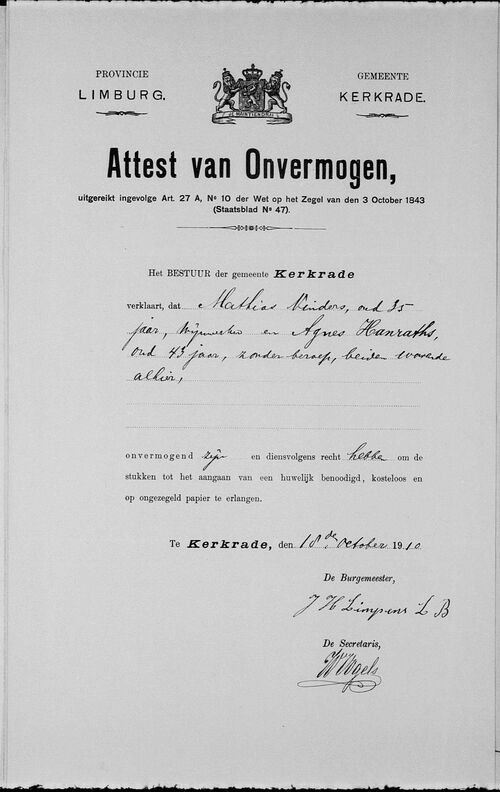 PROVINCIE
LIMBURG.
GEMEENTE
KERKRADE.
JE MAINTIENDRAI
Attest van Onvermogen,
uitgereikt ingevolge Art. 27 A, No 10 der Wet op het Zegel van den 3 October 1843
(Staatsblad No 47).
Het BESTUUR der gemeente Kerkrade
verklaart, dat Mathias Vinders, oud 35
jaar, mijnwerker en Agnes Hanraths,
oud 43 jaar, zonder beroep, beiden wonende
alhier,
onvermogend zijn en dienvolgens recht hebben om de
stukken tot het aangaan van een huwelijk benoodigd, kosteloos en
op ongezegeld papier te erlangen.
Te Kerkrade, den 18de October 1910
De Burgemeester,
J H Limpens L B
De Secretaris,